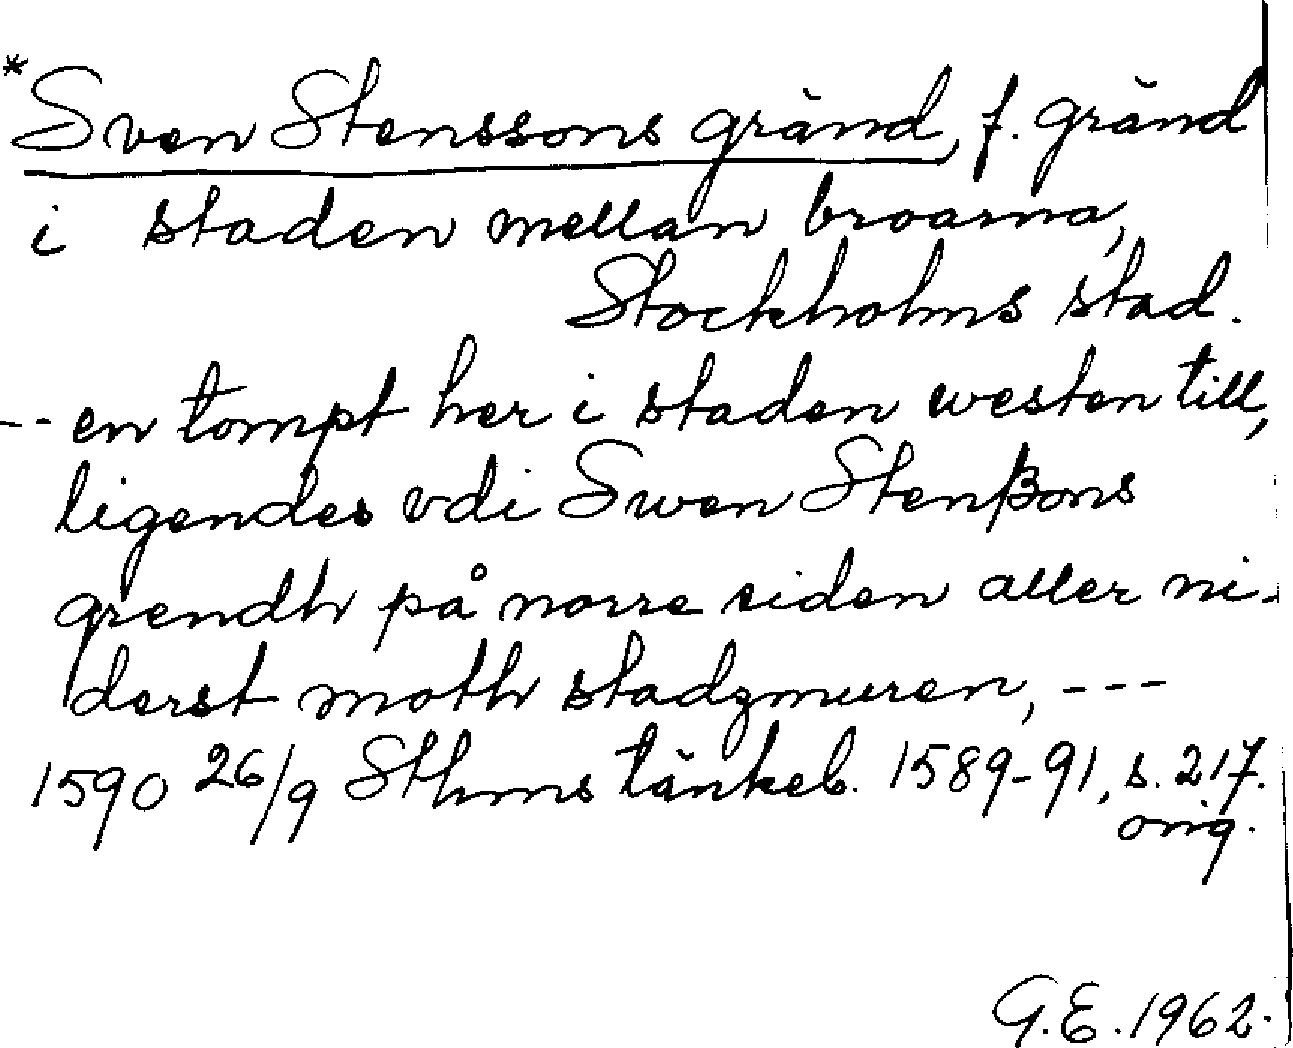 *Sven Stenssons gränd, f. gränd
i staden mellan broarna,
Stockholms stad.
-- en tompt her i staden westen till,
ligendes vdi Swen Stenßons
grendh på norre siden aller ni-
derst moth stadzmuren, ---
1590 26/9 Sthms tänkeb. 1589-91, s. 217.
orig.
G.E. 1962.